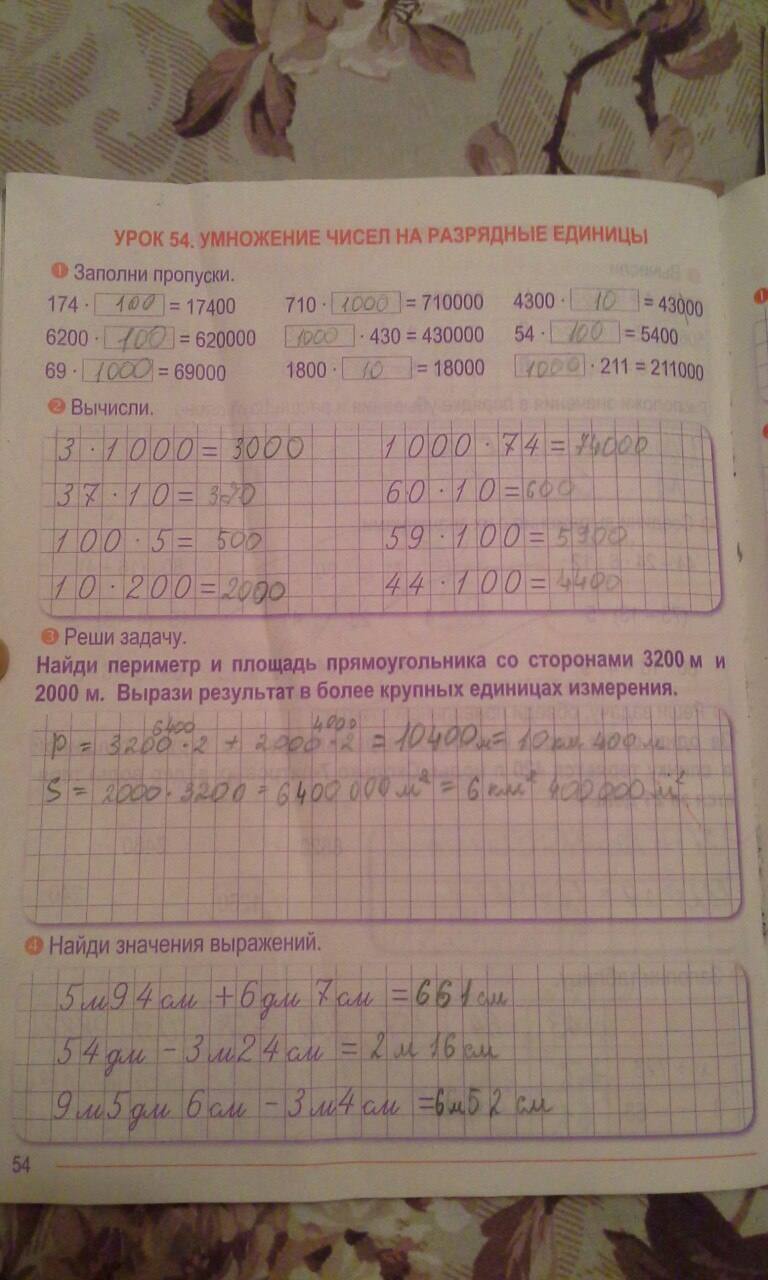 УРОК 54. УМНОЖЕНИЕ ЧИСЕЛ НА РАЗРЯДНЫЕ ЕДИНИЦЫ
1 Заполни пропуски.
174 · 100 = 17400 710 · 1000 = 710000 4300 · 10 = 43000
6200 · 100 = 620000 1000 · 430 = 430000 54 · 100 = 5400
69 · 1000 = 69000 1800 · 10 = 18000 1000 · 211 = 211000
2 Вычисли.
3 · 1000 = 3000 1000 · 74 = 74000
37 · 10 = 370 60 · 10 = 600
100 · 5 = 500 59 · 100 = 5900
10 · 200 = 2000 44 · 100 = 4400
3 Реши задачу.
Найди периметр и площадь прямоугольника со сторонами 3200 м и
2000 м. Вырази результат в более крупных единицах измерения.
6400 4000
P = 3200 · 2 + 2000 · 2 = 10400 м = 10 км 400 м
S = 2000 · 3200 = 6400 000 м² = 6 км² 400 000 м²
4 Найди значения выражений.
5 м 94 см + 6 дм 7 см = 661 см
54 дм − 3 м 24 см = 2 м 16 см
9 м 5 дм 6 см − 3 м 4 см = 6 м 52 см
54